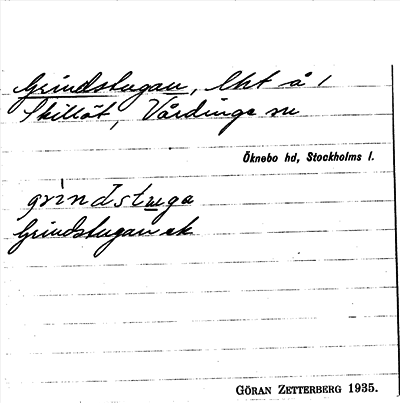 Grindstugan, lht å /
Skillöt, Vårdinge sn
Öknebo hd, Stockholms l.
grindstuga
Grindstugan ek
GÖRAN ZETTERBERG 1935.